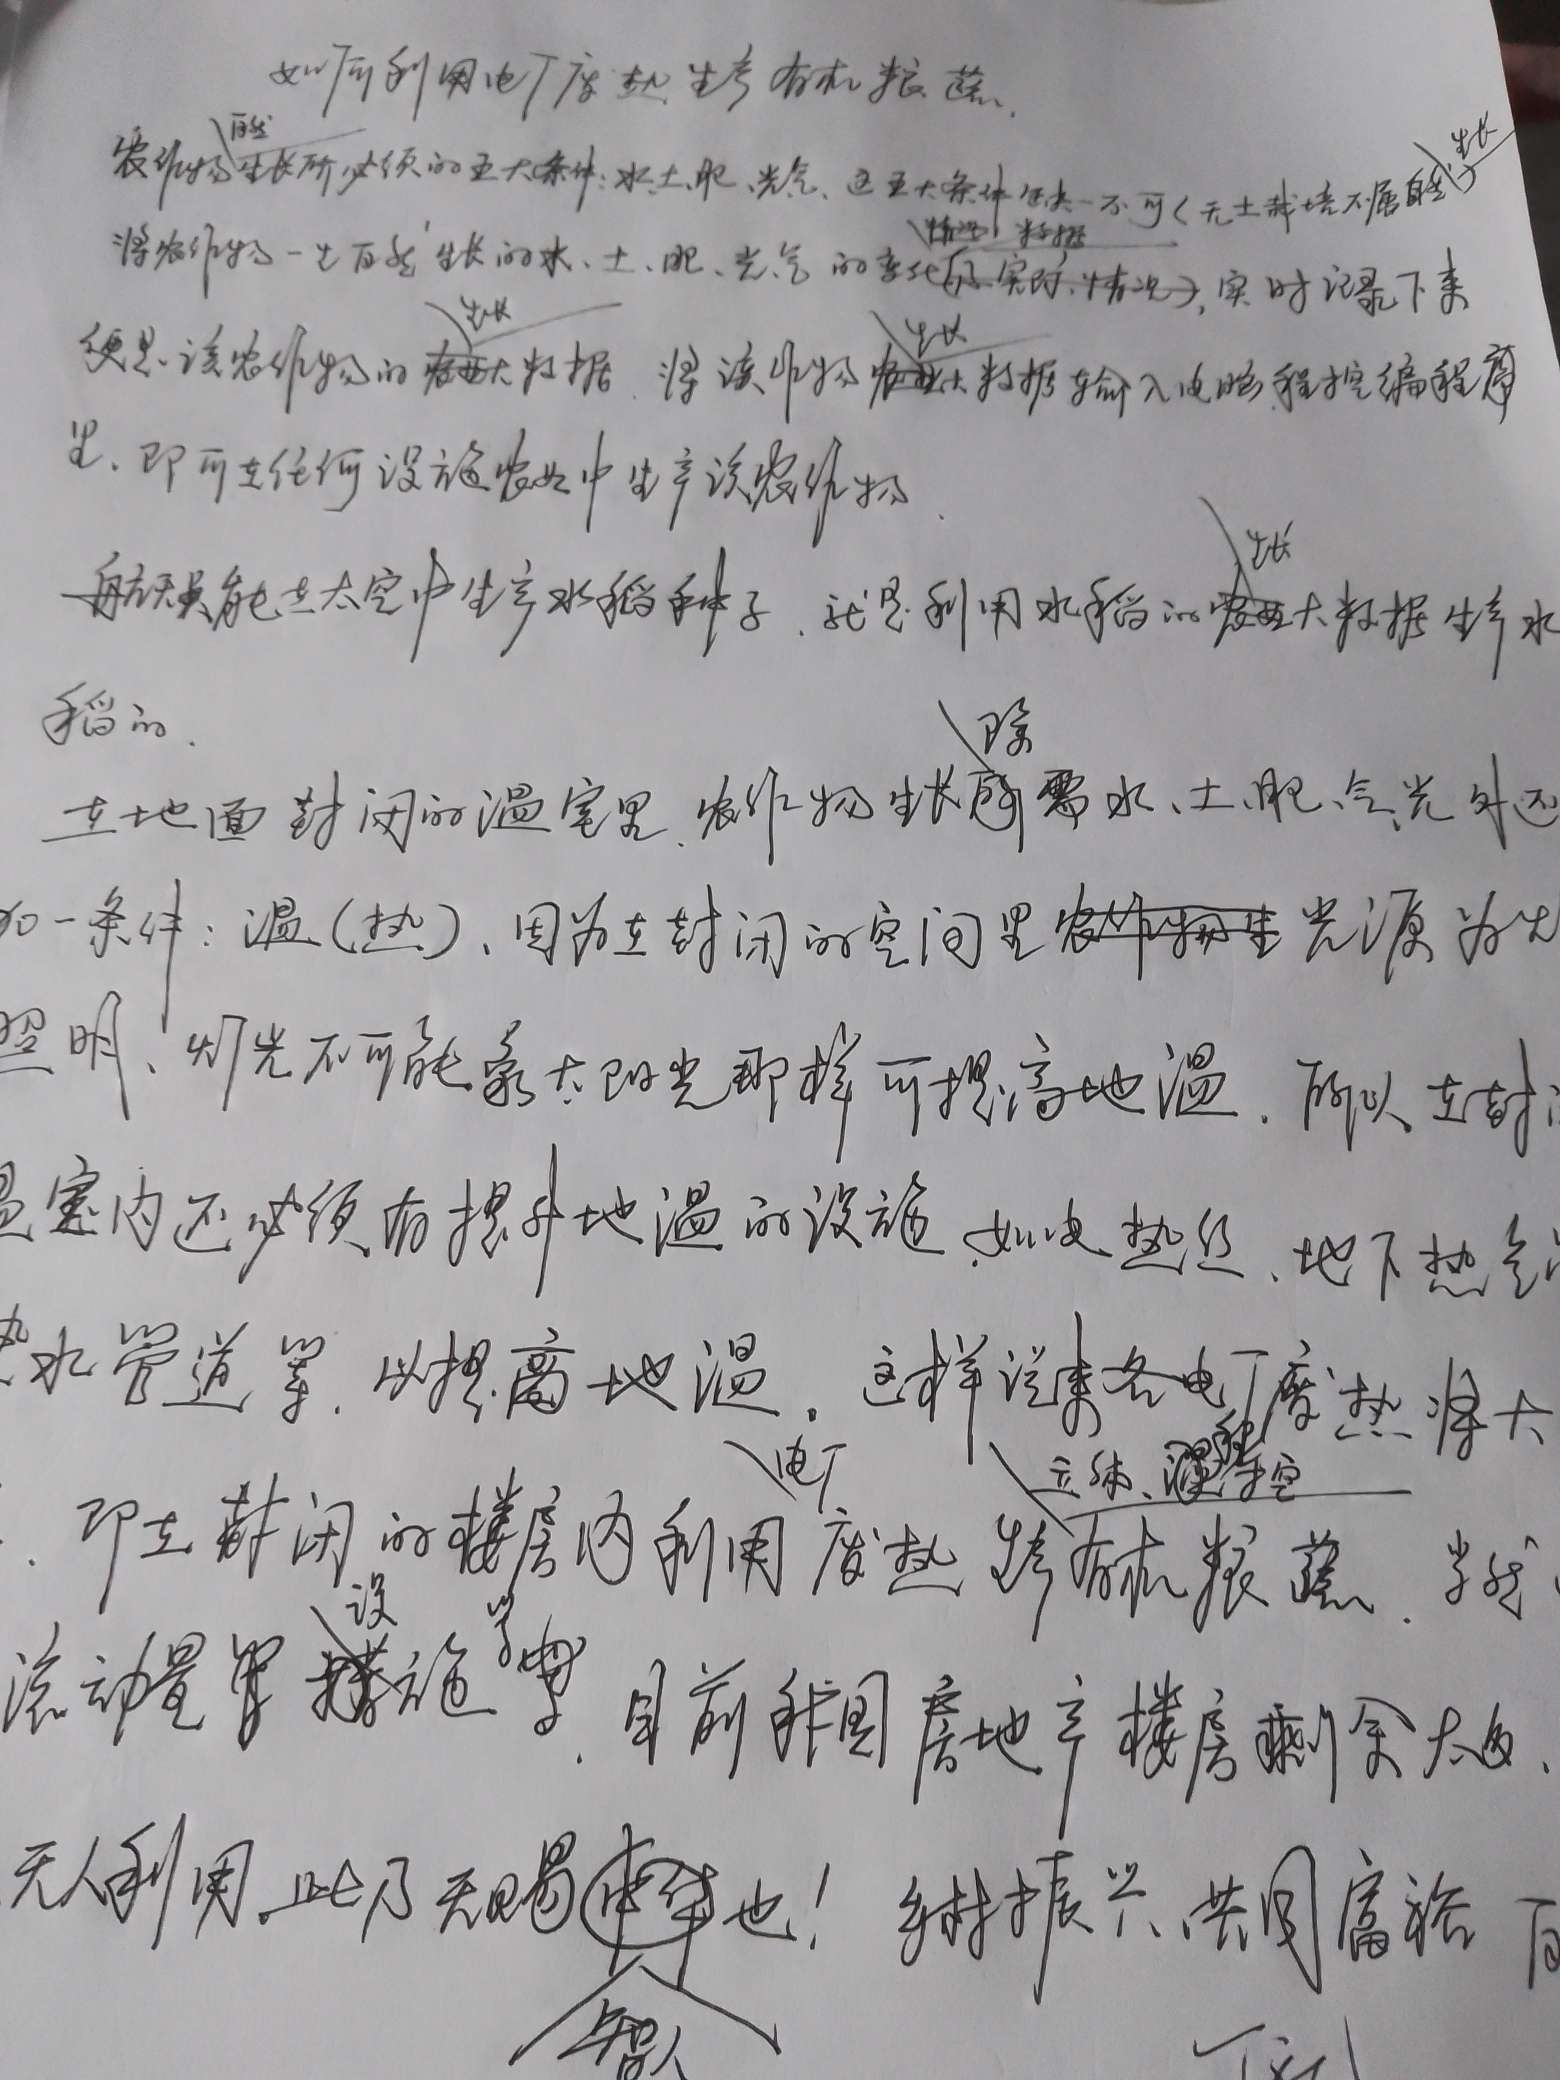 如何利用电厂废热生产有机粮蔬
农作物自然生长所必须的五大条件：水、土、肥、光、气、这五大条件缺一不可（无土栽培不属自然生长）
将农作物一生自然生长的水、土、肥、光、气的变化情况数据，实时记录下来
便是该农作物的生长大数据．将该作物生长大数据输入电脑程控编程序
里、即可在任何设施农业中生产该农作物．
航天员能在太空中生产水稻种子．就是利用水稻的生长大数据生产水
稻的．
在地面封闭的温室里．农作物生长除需水、土、肥、气、光外还
加一条件：温（热）、因为在封闭的空间里光源为
照明、灯光不可能象太阳光那样可提高地温．所以在封
温室内还必须有提升地温的设施．如电热丝、地下热气
热水管道等．以提高地温。这样说来各电厂废热将大
．即在封闭的楼房内利用电厂废热生产立体、程控有机粮蔬．当然
流动量等设施学．目前我国房地产楼房剩余太多、
无人利用．此乃天赐中华也！乡村振兴、共同富裕
智人